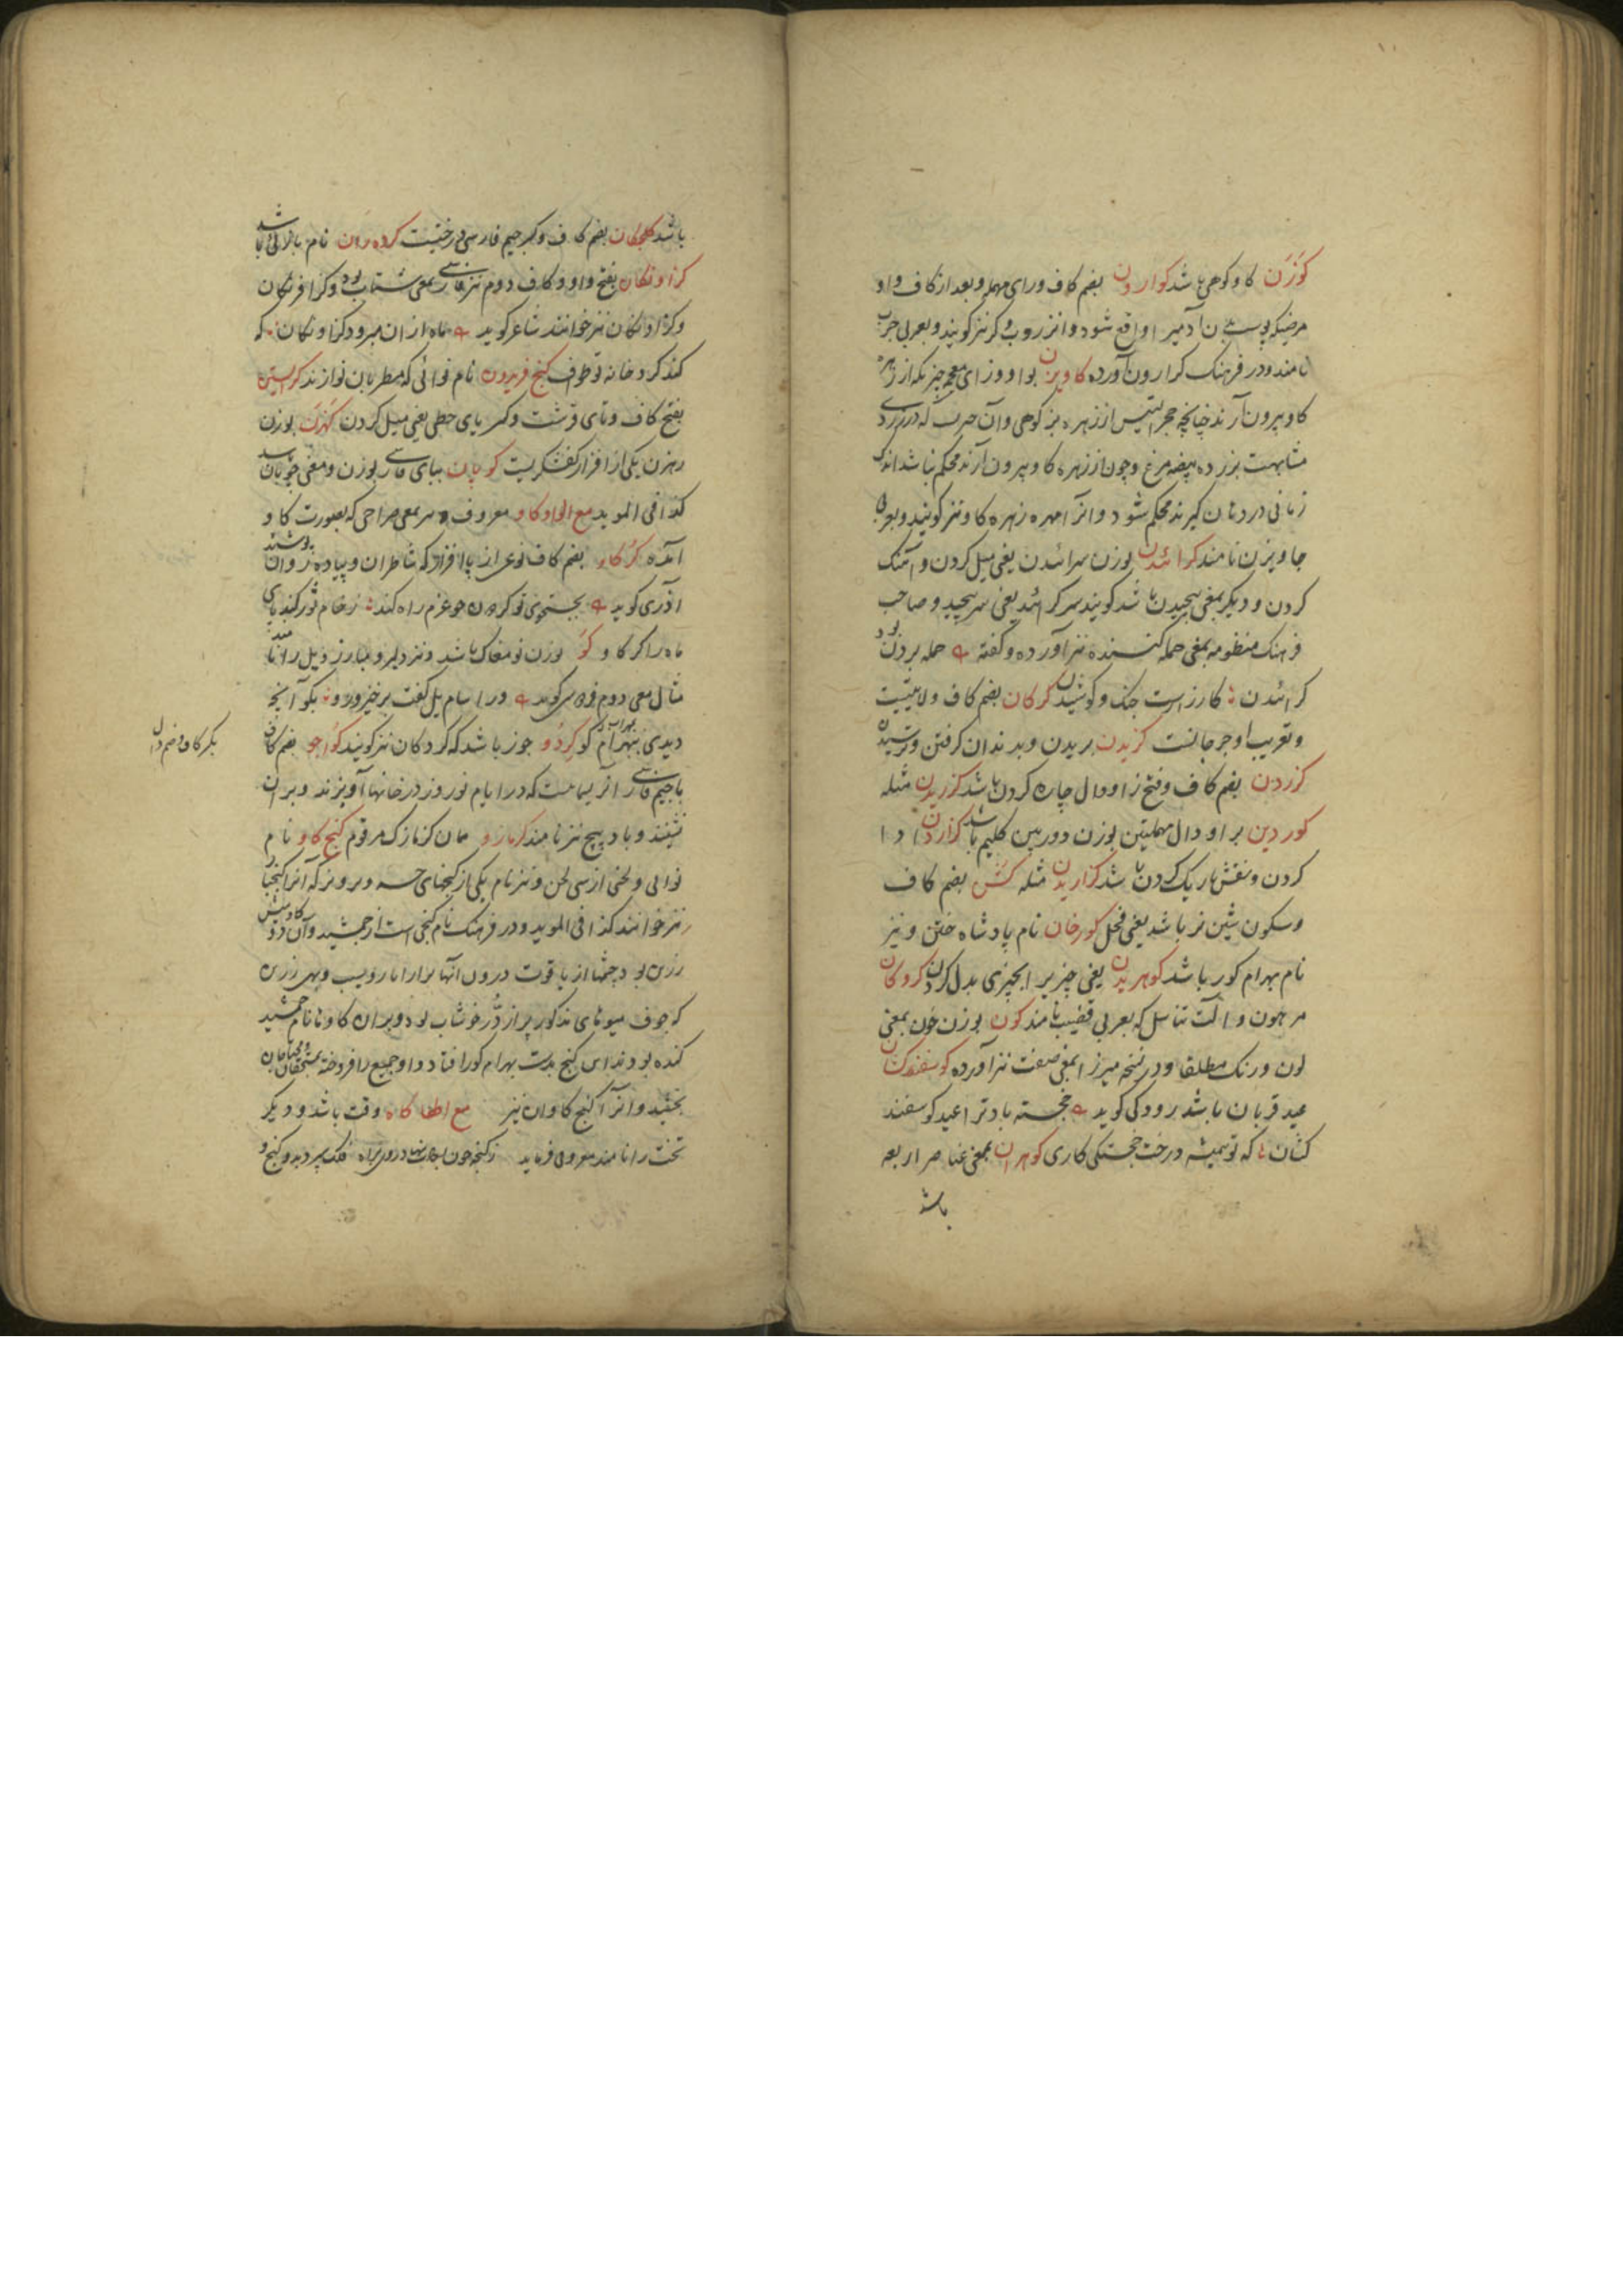 کوزن کاو کوهی باشد کوارون بضم کاف و رای مهمله و بعد از کاف واو
مرضیکه بپوست بدن آدمی را واقع شود و انرا روب و کر نیز کویند و بعربی جرب
نامند و در فرهنک کرارون آورده کاویزن بواو و زای معجمه چیزیکه از زهره
کاو بیرون آرند چنانچه حجر التیس از زهره بز کوهی و آن حریست که در زردی
مشابهت بزرده بیضه مرغ و چون از زهره کاو بیرون آرند محکم نباشد اندک
زمانی در دهان کیرند محکم شود و انرا مهره زهره کاو نیز کویند و بعربی
جاویزن نامند کرائیدن بوزن سرائیدن یعنی میل کردن و آهنک
کردن و دیکر بمعنی پیچیدن باشد کویند سر کرائید یعنی سر پیچید و صاحب
فرهنک منظومه بمعنی حمله کننده نیز آورده و کفته حمله بردن بود
کرائیدن کارزارست جنک و کوشیدن کرکان بضم کاف ولایتیست
و تعریب او جرجانست کزیدن بریدن و بدندان کرفتن و ترسیدن
کزردن بضم کاف و فتح زا و دال چاره کردن باشد کزریدن مثله
کوردین برا و دال مهملتین بوزن دوربین کلیم باشد کزاردن ادا
کردن و نقش باریک کردن باشد کزاریدن مثله کشن بضم کاف
و سکون شین نر باشد یعنی فحل کورخان نام پادشاه ختن و نیز
نام بهرام کور باشد کوهریدن یعنی چیزیرا بچیزی بدل کردن کروکان
مرهون و آلت تناسل که بعربی قضیب نامند کون بوزن خون بمعنی
لون و رنک مطلقا و در نسخه میرزا بمعنی صفت نیز آورده کوسفندکشان
عید قربان باشد رودکی کوید خجسته بادترا عید کوسفند
کشان که تو همیشه درخت خجستکی کاری کوهران بمعنی عناصر اربعه
باشد
باشد کلچکان بضم کاف و کسر جیم فارسی درختیست کرده ران نام بازائی باشد
کزاونکان بفتح واو و کاف دوم نیز فارسی بمعنی شتاب بود و کزافرنکان
و کزادنکان نیز خوانند شاعر کوید ماه از ان میرود کزاونکان که
کند کرد خانه تو طواف کنج فریدون نام نوائی که مطربان نوازند کراستین
بفتح کاف و تای قرشت و کسر یای حطی یعنی میل کردن کهزن بوزن
رهزن یکی از افزار کفشکریست کوپان ببای فارسی بوزن و معنی چوپان باشد
کذا فی الموید مع الواو کاو معروف و بمعنی صراحی که بصورت کاو
آمده کرکاو بضم کاف نوعی از پا افزار که شاطران و پیاده روان پوشند
آذری کوید بجستجوی تو کردون چو عزم راه کند زخام ثور کند پای
ماه را کرکاو کو بوزن نو مغاک باشد و نیز دلیر و مبارز و یل را نامند
مثال معنی دوم فردوسی کوید و را سام یل کفت برخیز و رو بکو آنچه
دیدی بمهراب کو کردو جوز باشد که کردکان نیز کویند کواجو بضم کاف
با جیم فارسی انریسمانست که در ایام نوروز در خانها آویزند و بران
نشینند و باد پیچ نیز نامند کزمازو همان کزمازک مرقوم کنج کاو نام
نوائی و لحنی از سی لحن و نیز نام یکی از کنجهای خسرو پرویز که آنرا کنجباد
نیز خوانند کذا فی الموید و در فرهنک نام کنجی است از جمشید و آن دو کاومیش
زرین بود چشمها از یاقوت درون آنها برار انار و سیب و بهی زرین
که جوف میوهای مذکور پر از در خوشاب بود و بران کاوها نام جمشید
کنده بودند این کنج بدست بهرام کور افتاد و او جمیع را فروخته بمستحقان و محتاجان
بخشید و انرا کنج کاوان نیز مع الها کاه وقت باشد و دیکر
تخت را نامند معروفی فرماید
بکسر کاف و ضم دال